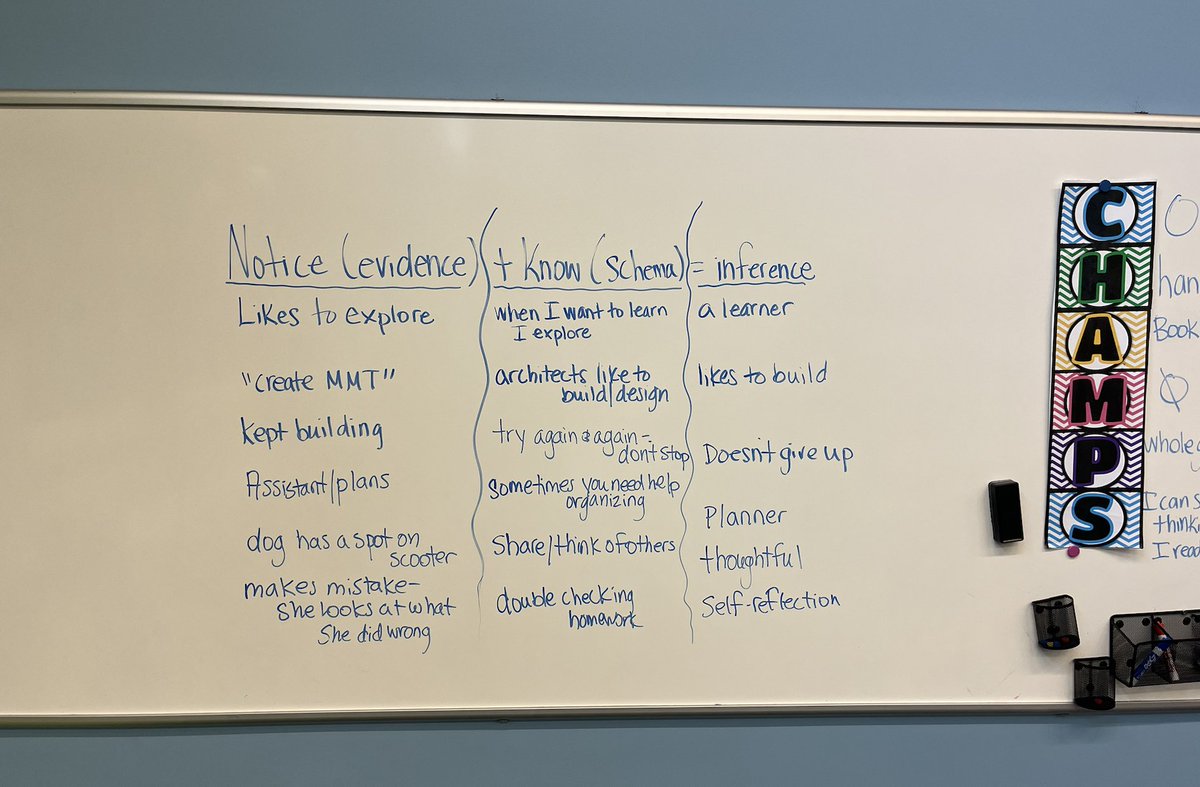 Notice (evidence) + Know (schema) = inference
Likes to explore
when I want to learn
I explore
a learner
"create MMT"
architects like to
build/design
likes to build
kept building
try again & again -
dont stop
Doesn't give up
Assistant/plans
Sometimes you need help
organizing
Planner
dog has a spot on
scooter
Share/think of others
thoughtful
makes mistake-
She looks at what
She did wrong
double checking
homework
Self-reflection
C
H
A
M
P
S
han
Book
whole
I can s
think
I read